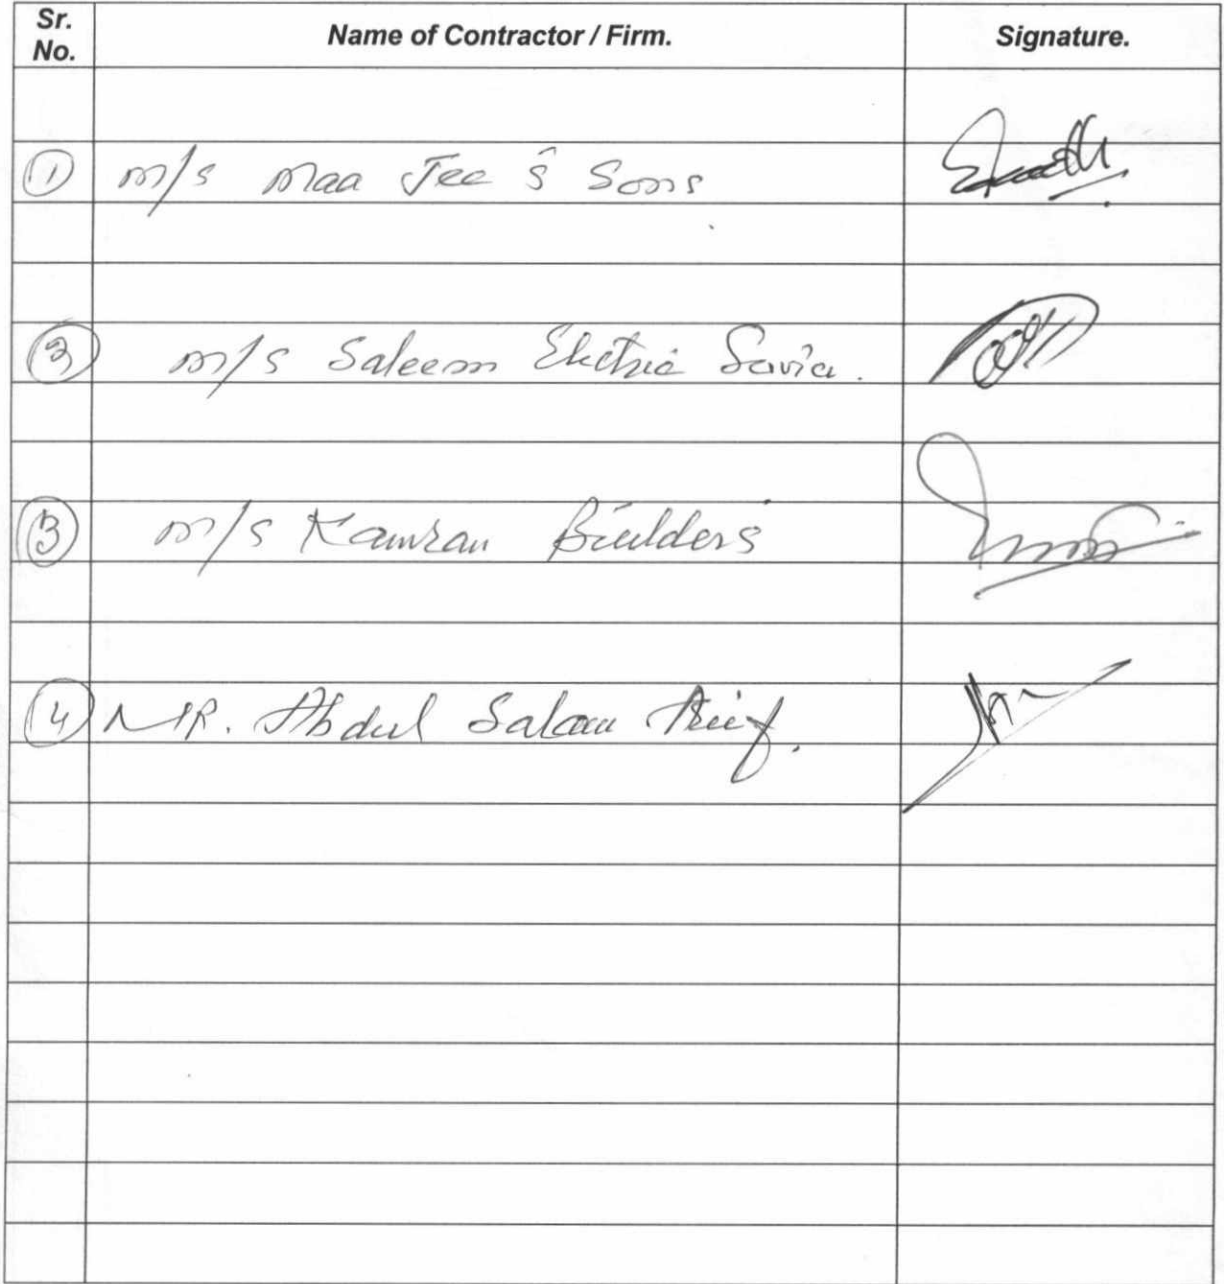 Sr. No. Name of Contractor / Firm. Signature.
① M/s Maa Jee & Sons
② M/s Saleem Electric Service.
③ M/s Kamran Builders
④ MR. Abdul Salam